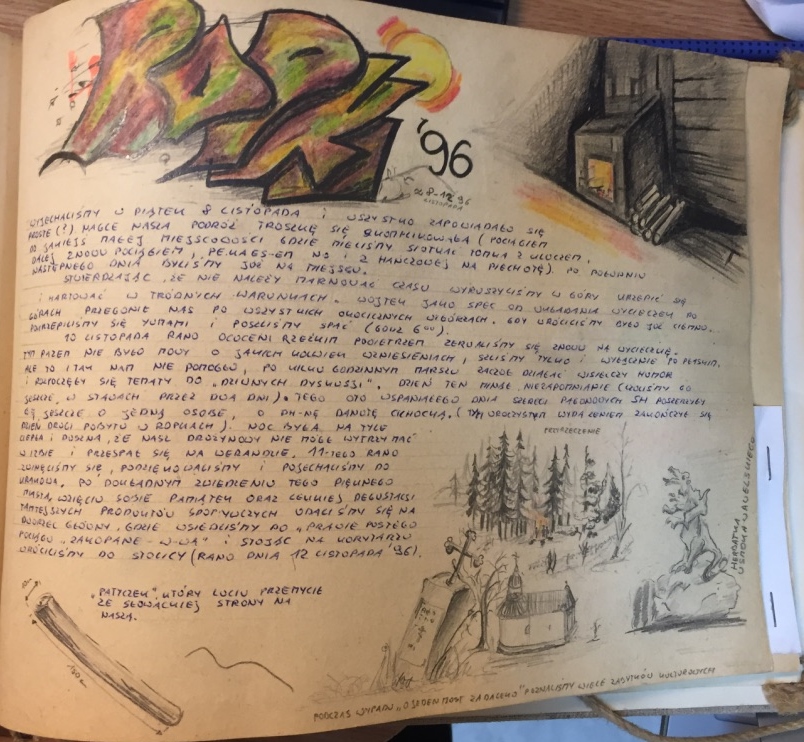 ROPKI
'96
od 8-12 '96
LISTOPADA
WYJECHALIŚMY W PIĄTEK 8 LISTOPADA I WSZYSTKO ZAPOWIADAŁO SIĘ
PROSTE (?) NAGLE NASZA PODRÓŻ TROSZKĘ SIĘ SKOMPLIKOWAŁA (POCIĄGIEM
DO JAKIEJŚ MAŁEJ MIEJSCOWOŚCI GDZIE MIELIŚMY SPOTKAĆ TOMKA Z KLUCZEM,
DALEJ ZNOWU POCIĄGIEM, PE.KA.ES-EM NO I Z HAŃCZOWEJ NA PIECHOTĘ). PO POŁUDNIU
NASTĘPNEGO DNIA BYLIŚMY JUŻ NA MIEJSCU.
STWIERDZAJĄC, ŻE NIE NALEŻY MARNOWAĆ CZASU WYRUSZYLIŚMY W GÓRY URZEPIĆ SIĘ
I HARTOWAĆ W TRÓDNYCH WARUNKACH. WOJTEK JAKO SPEC OD UKŁADANIA WYCIECZEK PO
GÓRACH PRZEGONIŁ NAS PO WSZYSTKICH OKOLICZNYCH WZGÓRZACH. GDY WRÓCILIŚMY BYŁO JUŻ CIEMNO...
POKRZEPILIŚMY SIĘ YUPAMI I POSZLIŚMY SPAĆ (GODZ 6⁰⁰).
10 LISTOPADA RANO OCUCENI RZEŚKIM POWIETRZEM ZERWALIŚMY SIĘ ZNOWU NA WYCIECZKĘ.
TYM RAZEM NIE BYŁO MOWY O JAKICH KOLWIEK WZNIESIENIACH, SZLIŚMY TYLKO I WYŁĄCZNIE PO PŁASKIM,
ALE TO I TAK NAM NIE POMOGŁO, PO KILKU GODZINNYM MARSZU ZACZĄŁ DZIAŁAĆ WISIELCZY HUMOR
I KOŃCZYŁY SIĘ TEMATY DO „DZIWNYCH DYSKUSJI". DZIEŃ TEN MINĄŁ NIEZAPOMNIANIE (CZULIŚMY GO
JESZCZE W STAWACH PRZEZ DWA DNI). TEGO OTO WSPANIAŁEGO DNIA SZEREGI
JESZCZE O JEDNĄ OSOBĘ, O DH-NĘ DANUTĘ CICHOCKĄ. (TYM UROCZYSTYM WYDARZENIEM ZAKOŃCZYŁ SIĘ
DZIEŃ DRUGI POBYTU W ROPKACH). NOC BYŁA NA TYLE
CIEPŁA I DUSZNA, ŻE NASZ DRUŻYNOWY NIE MÓGŁ WYTRZYMAĆ
W IZBIE I PRZESPAŁ SIĘ NA WERANDZIE. 11-TEGO RANO
ZWINĘLIŚMY SIĘ, PODZIĘKOWALIŚMY I POJECHALIŚMY DO
KRAKOWA. PO DOKŁADNYM ZWIEDZENIU TEGO PIĘKNEGO
MIASTA, WZIĘCIU SOBIE PAMIĄTEK ORAZ LEKKIEJ DEGUSTACJI
TAMTEJSZYCH PRODUKTÓW SPOŻYWCZYCH UDALIŚMY SIĘ NA
DWORZEC GŁÓWNY, GDZIE WSIEDLIŚMY DO „PRAWIE PUSTEGO
POCIĄGU „ZAKOPANE-W-WA" I STOJĄC NA KORYTARZU
WRÓCILIŚMY DO STOLICY (RANO DNIA 12 LISTOPADA '96).
PRZYRZECZENIE
HERBATKA
U SMOKA WAWELSKIEGO
„PATYCZEK", KTÓRY LUCIU PRZEMYCIŁ
ZE SŁOWACKIEJ STRONY NA
NASZĄ.
PODCZAS WYPADU „O JEDEN MOST ZA DALEKO" POZNALIŚMY WIELE ZABYTKÓW KULTUROWYCH